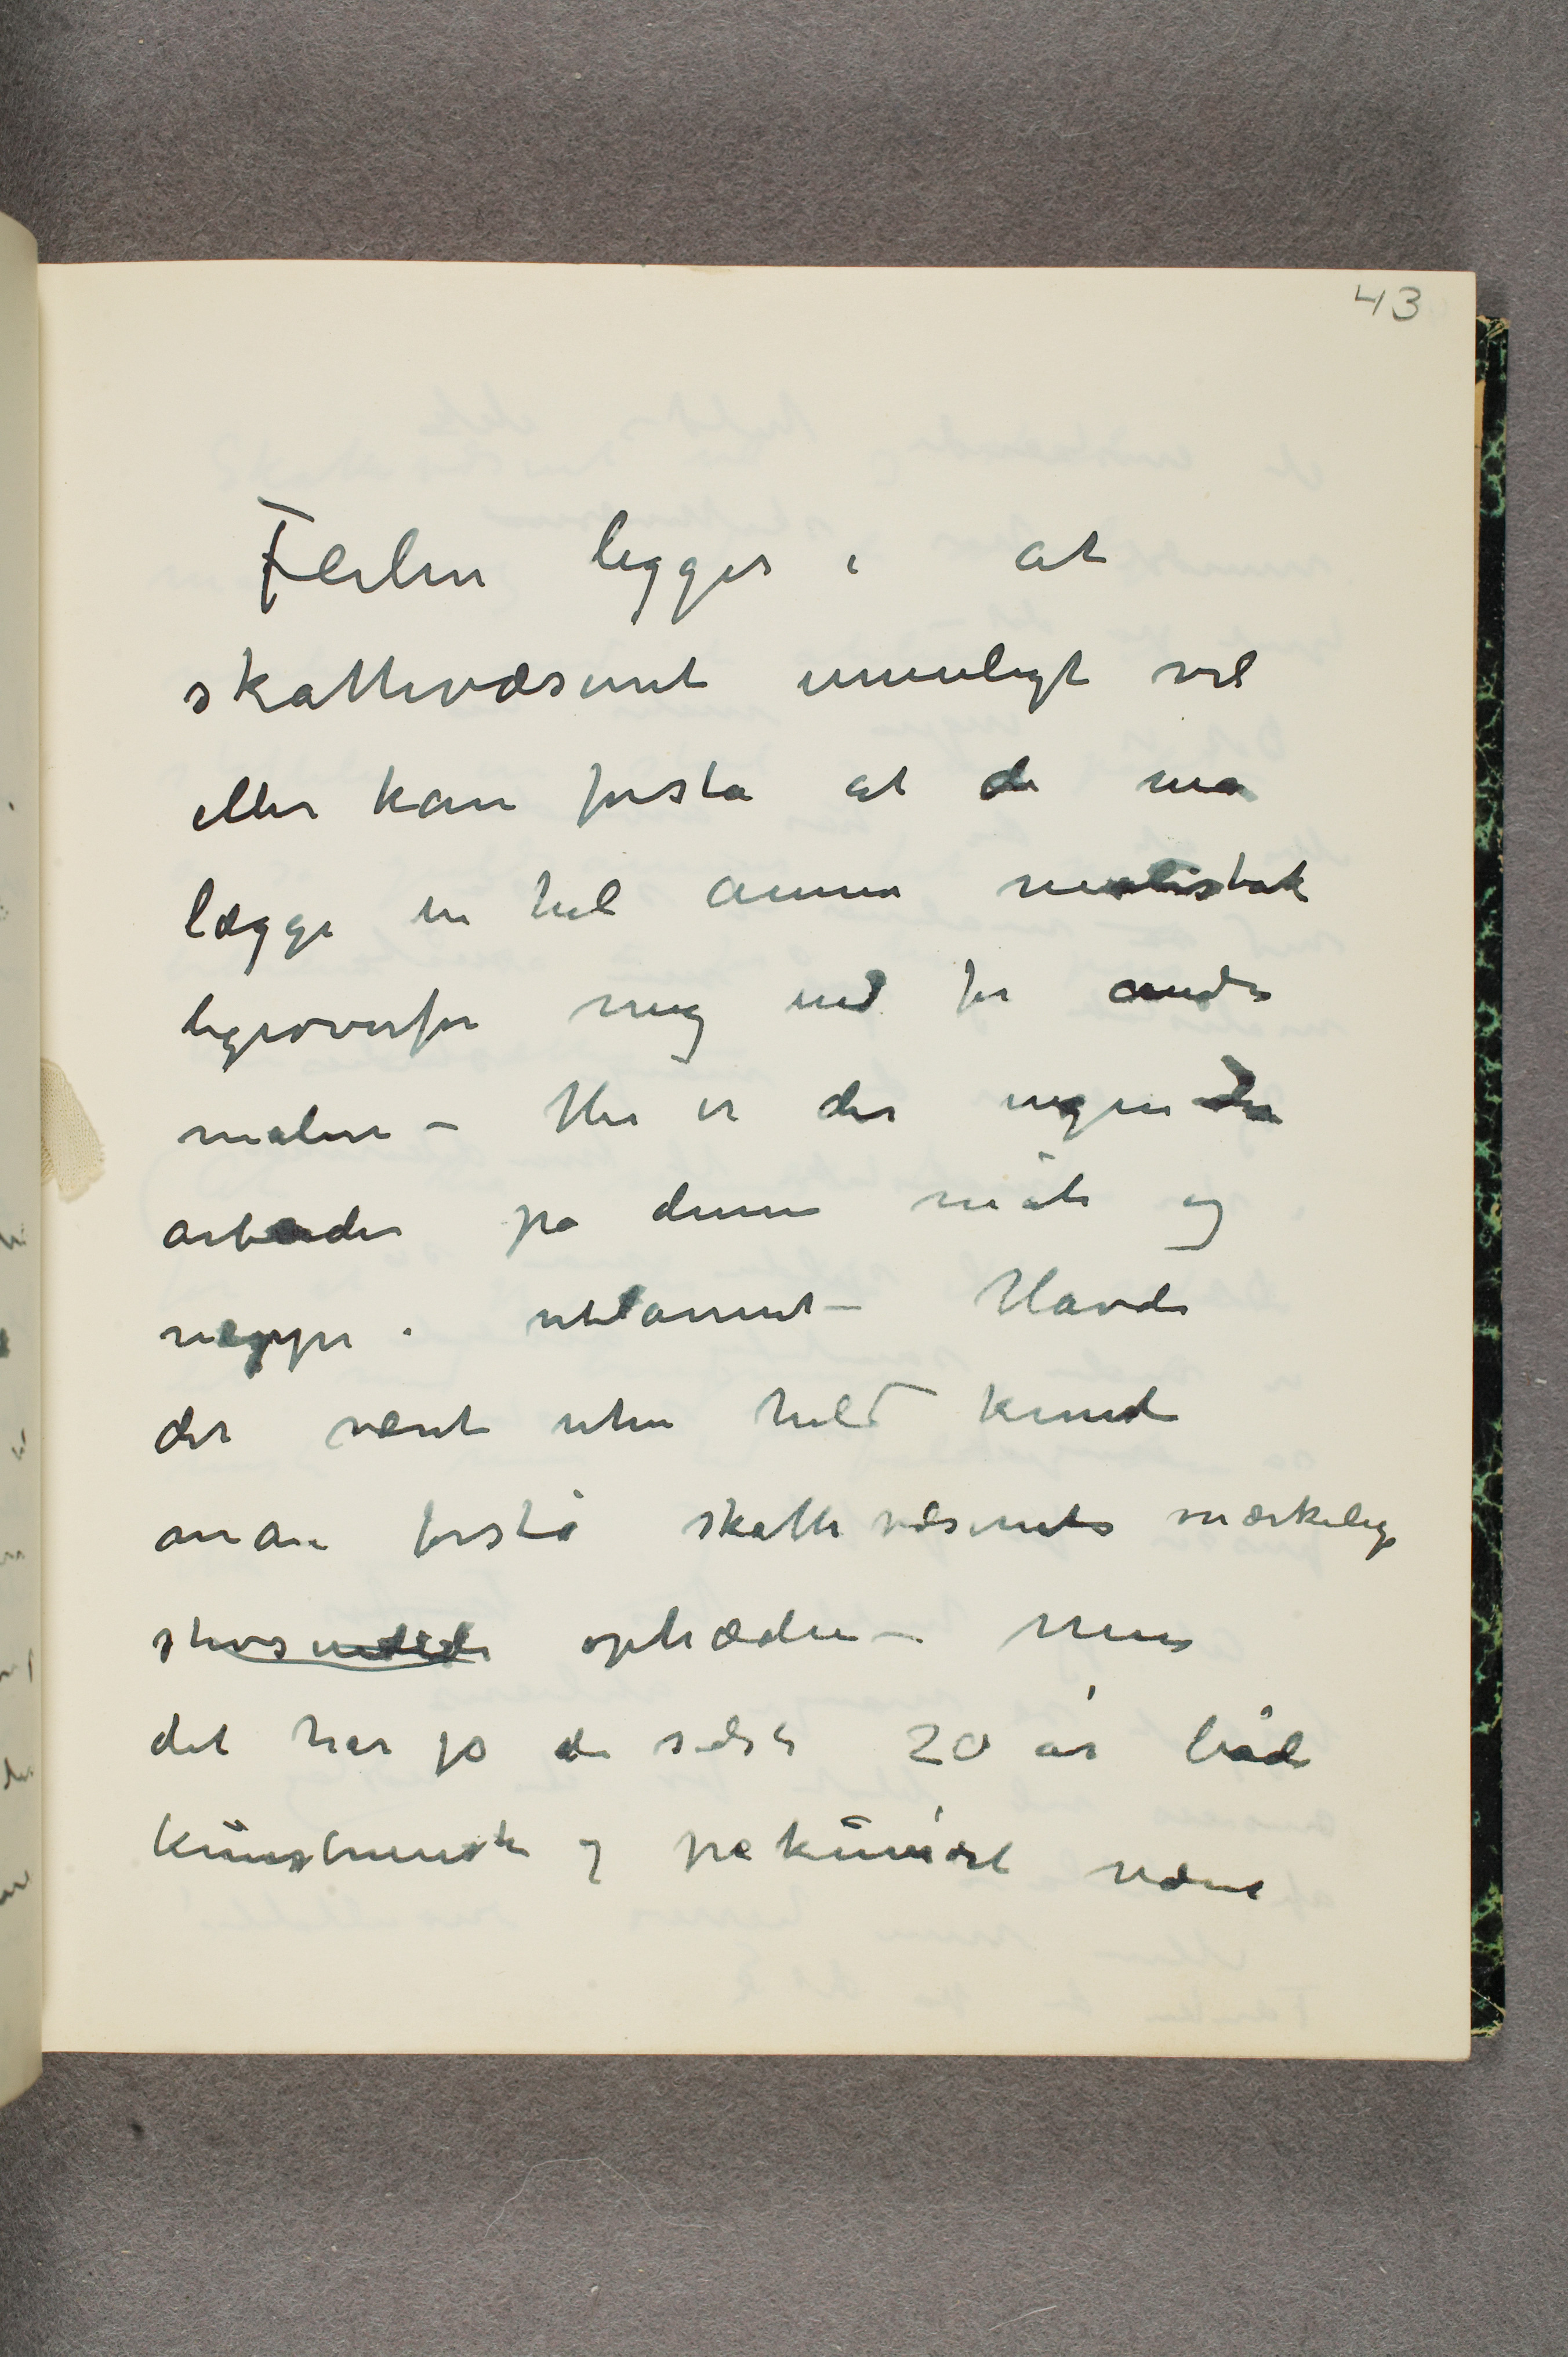 43
Feilen ligger i at
skattevæsenet umuligt vil
eller kan forstå at de må
lægge en hel annen målestok
ligeoverfor mig end for andre
malere – Her er der ingen der
arbeider på denne måte og
neppe i utlannet – Havde
det været uten held kunde
man forstå skattevæsenets mærkelige
optræden – Men
det har jo de sidste 20 år både
kunstnerisk og pekuniært været